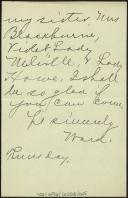 my sister, Mrs
Blackburne,
Violet Lady
Melville, & Lady
Howe. I shall
be so glad if
you can come.
Yrs sincerely
Ward.
Thursday.